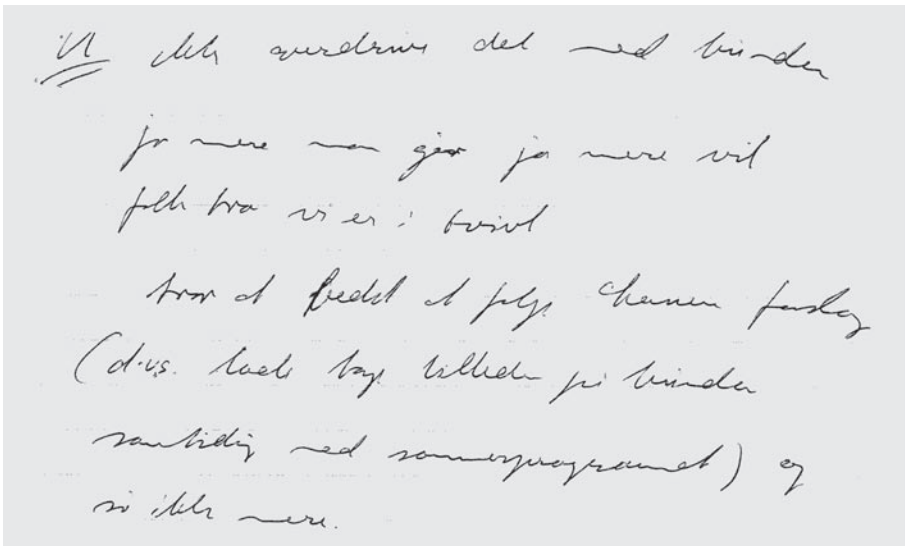 Vi ikke overdrive det med kvinder
jo mere man gør jo mere vil
folk tro vi er i tvivl
tror at bedst at følge forslag
(d.v.s. lade tage billeder på kvinder
samtidig med sommerprogrammet) og
så ikke mere.